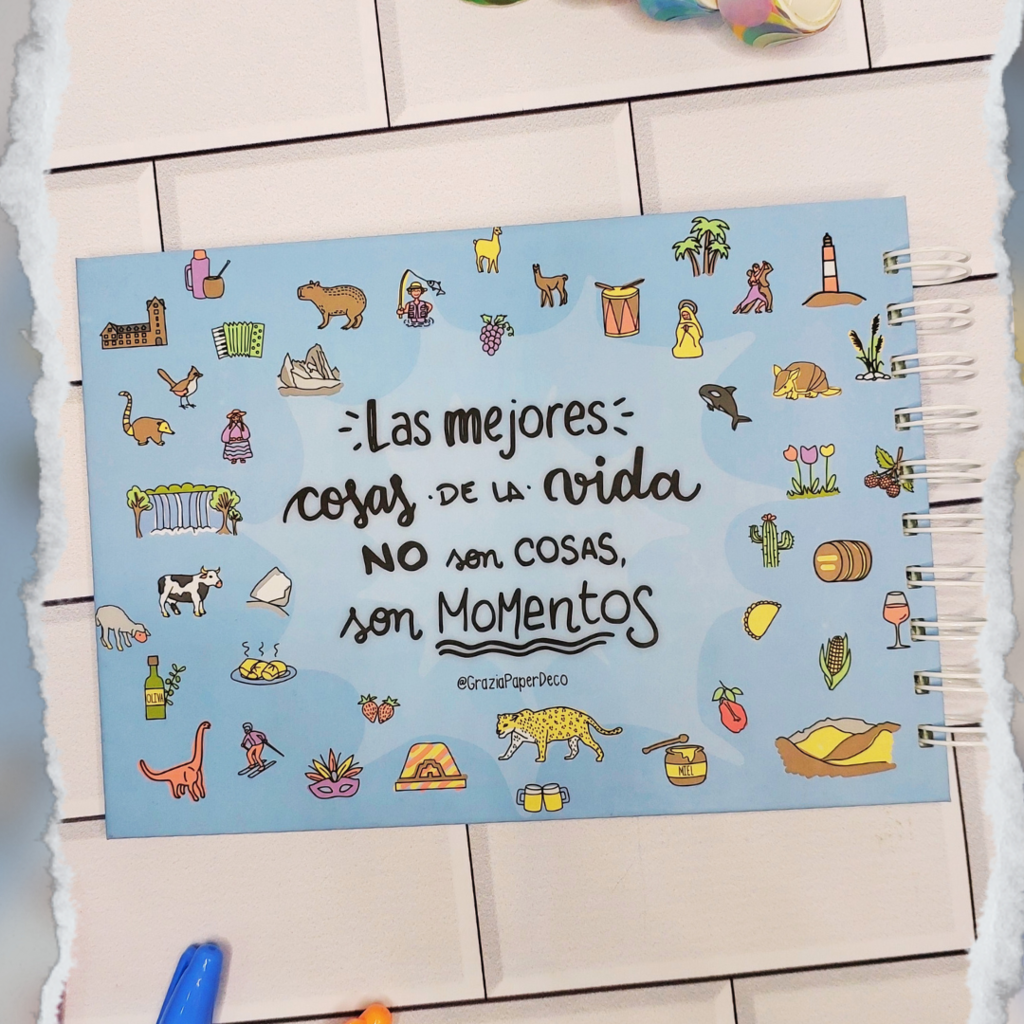 Las mejores
cosas DE LA vida
NO son COSAS,
son MoMentos
@GraziaPaperDeco
OLIVA
MIEL